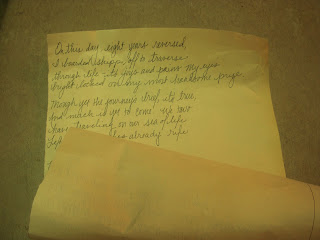 On this day eight years reversed,
I boarded shipp, off to traverse
through life - its joys and pains. My eyes
bright, looked on my most handsome prize.
Though yet the journey's brief, it's true,
And much is yet to come. We two
traveling on our sea of life
already rife